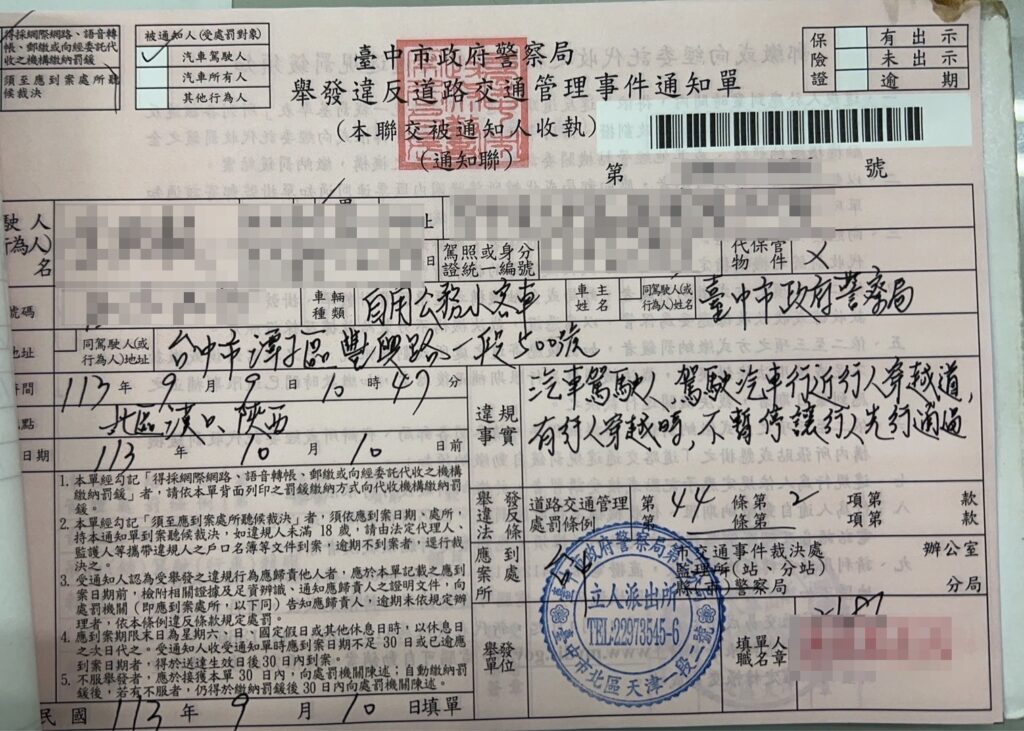 得採網際網路、語音轉
帳、郵繳或向經委託代
收之機構繳納罰鍰
須至應到案處所聽
候裁決
被通知人(受處罰對象)
汽車駕駛人
汽車所有人
其他行為人
臺中市政府警察局
舉發違反道路交通管理事件通知單
(本聯交被通知人收執)
(通知聯)
保險證
有出示
未出示
逾期
第 號
駛人
行為人)
名
址
日
駕照或身分
證統一編號
代保管
物件
號碼
車輛
種類
自用公務小客車
車主
姓名
同駕駛人(或
行為人)姓名
臺中市政府警察局
地址
同駕駛人(或
行為人)地址
台中市潭子區豐興路一段500號
時間
113年9月9日10時47分
地點
北區漢口、陝西
日期
113年10月10日前
違規
事實
汽車駕駛人,駕駛汽車行近行人穿越道,
有行人穿越時,不暫停讓行人先行通過
1. 本單經勾記「得採網際網路、語音轉帳、郵繳或向經委託代收之機構
繳納罰鍰」者,請依本單背面列印之罰鍰繳納方式向代收機構繳納罰
鍰。
2. 本單經勾記「須至應到案處所聽候裁決」者,須依應到案日期、處所,
持本通知單到案聽候裁決,如違規人未滿18歲,請由法定代理人、
監護人等攜帶違規人之戶口名簿等文件到案,逾期不到案者,逕行裁
決之。
3. 受通知人認為受舉發之違規行為應歸責他人者,應於本單記載之應到
案日期前,檢附相關證據及足資辨識、通知應歸責人之證明文件,向
處罰機關(即應到案處所,以下同)告知應歸責人,逾期未依規定辦
理者,依本條例違反條款規定處罰。
4. 應到案期限末日為星期六、日、國定假日或其他休息日時,以休息日
之次日代之。受通知人收受通知單時應到案日期不足30日或已逾應
到案日期者,得於送達生效日後30日內到案。
5. 不服舉發者,應於接獲本單30日內,向處罰機關陳述;自動繳納罰
鍰後,若有不服者,仍得於繳納罰鍰後30日內向處罰機關陳述。
舉發
違反
法條
道路交通管理
處罰條例
第44條第2項第 款
第 條第 項第 款
應到
案處所
市交通事件裁決處
監理所(站、分站)
縣(市)警察局
辦公室
分局
舉發
單位
立人派出所
TEL:22973545-6
臺中市北區天津一段二號
填單人
職名章
民國113年9月10日填單